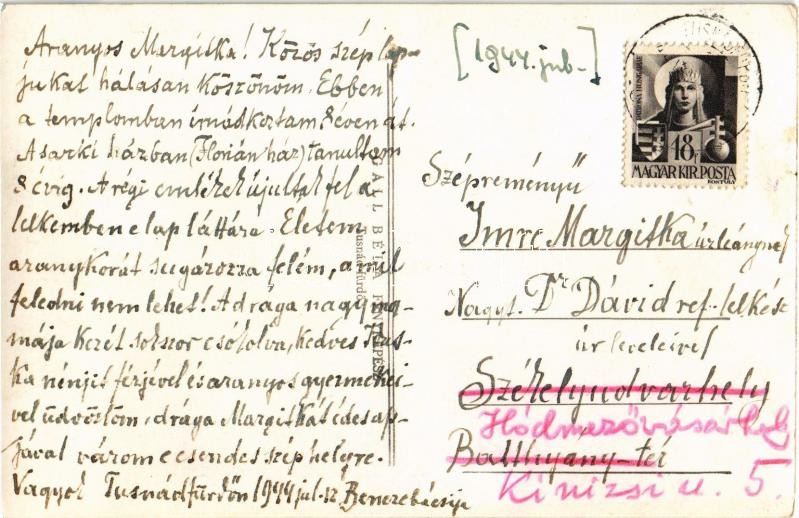 Aranyos Margitka! Közös szép lap-
jukat hálásan köszönöm. Ebben
a templomban imádkoztam 8 éven át.
A sarki házban (Flórián ház) tanultam
8 évig. A régi emlékek újultak fel a
lelkemben e lap láttára. Életem
aranykorát sugározza felém, a mit
feledni nem lehet! A drága nagyma-
mája kezét sokszor csókolva, kedves
ka nénjét férjével és aranyos gyermekei-
vel üdvözlöm, drága Margitkát édesap-
jával várom e csendes szép helyre.
Vagyok Tusnádfürdőn 1944 jul. 12 Bencze bácsija
[1944. jul.]
PATRONA HUNGARIAE
18f
MAGYAR KIR. POSTA
KONTULY
Szépreményű
Imre Margitka úrleánynak
Nagyt. Dr Dávid ref. lelkész
úr leveleivel
Székelyudvarhely
Hódmezővásárhely
Batthyány-tér
Kinizsi u. 5.
GÁLL BÉLA FÉNYKÉPÉSZ
Tusnádfürdő